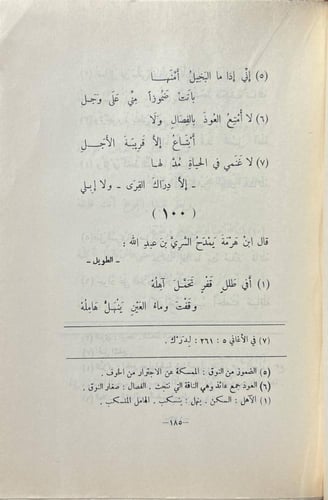 (٥) إِنِّي إِذَا مَا البَخِيلُ أَمَّنَهَا
بَاتَتْ ضَمُوزاً مِنِّي عَلَى وَجَلِ
(٦) لَا أُمْتِعُ العُوذَ بِالفِصَالِ وَلَا
أَبْتَاعُ إِلَّا قَرِيبَةَ الأَجَلِ
(٧) لَا غَنَمِي فِي الحَيَاةِ مُدَّ لَهَا
- إِلَّا دِرَاكَ القِرَى - وَلَا إِبِلِي
( ١٠٠ )
قال ابنُ هَرْمَةَ يَمْدَحُ السَّرِيَّ بنَ عبدِ الله :
- الطويل -
(١) أَفِي طَلَلٍ قَفْرٍ تَحَمَّلَ آهِلُهْ
وَقَفْتَ وَمَاءُ العَيْنِ يَنْهَلُّ هَامِلُهْ
(٧) في الأغاني ٥ : ٢٦١ : لِدَرْكَ .
(٥) الضموز من النوق : الممسكة عن الاجترار من الخوف .
(٦) العوذ جمع عائذ وهي الناقة التي نتجت . الفصال : صغار النوق .
(١) الآهل : السكن . ينهل : ينسكب . الهامل المنسكب .
- ١٨٥ -